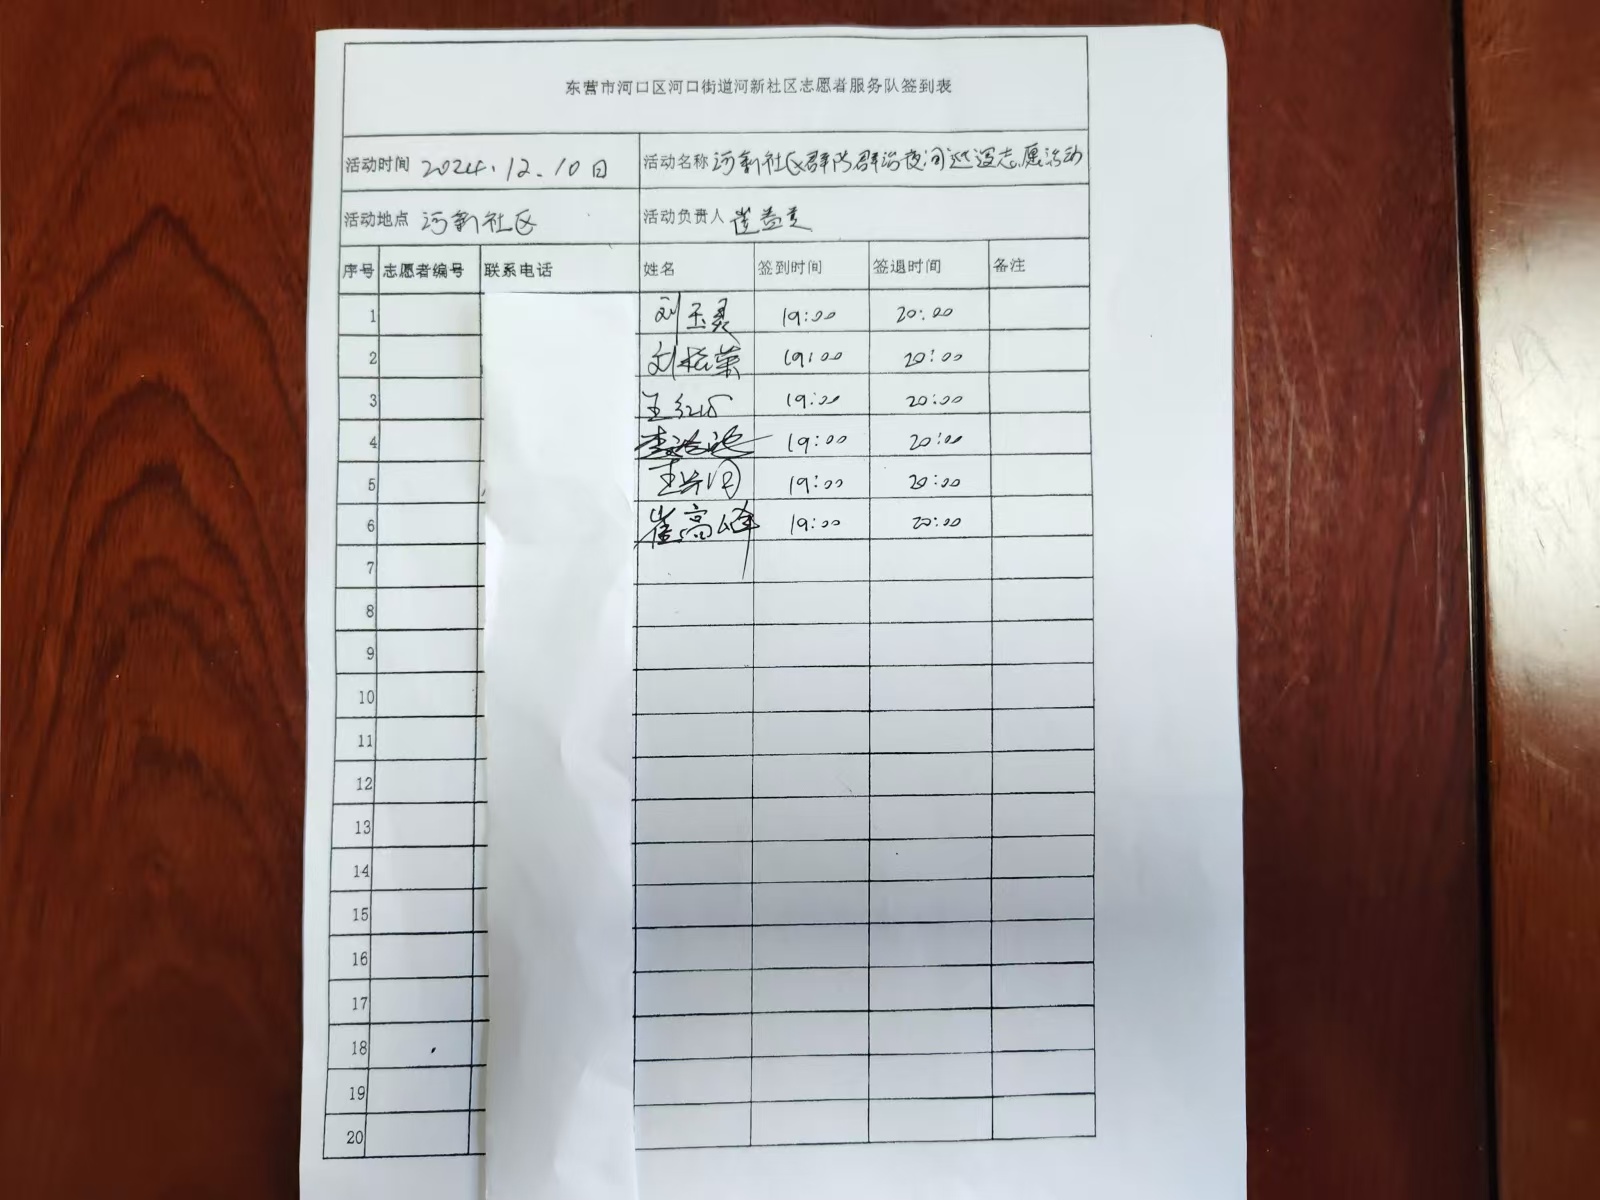 东营市河口区河口街道河新社区志愿者服务队签到表
活动时间 2024.12.10日 活动名称 河新社区群防群治夜间巡逻志愿活动
活动地点 河新社区 活动负责人 崔
序号 志愿者编号 联系电话 姓名 签到时间 签退时间 备注
1 刘玉 19:00 20:00
2 刘 19:00 20:00
3 王红 19:00 20:00
4 李 19:00 20:00
5 王 19:00 20:00
6 崔高峰 19:00 20:00
7
8
9
10
11
12
13
14
15
16
17
18
19
20